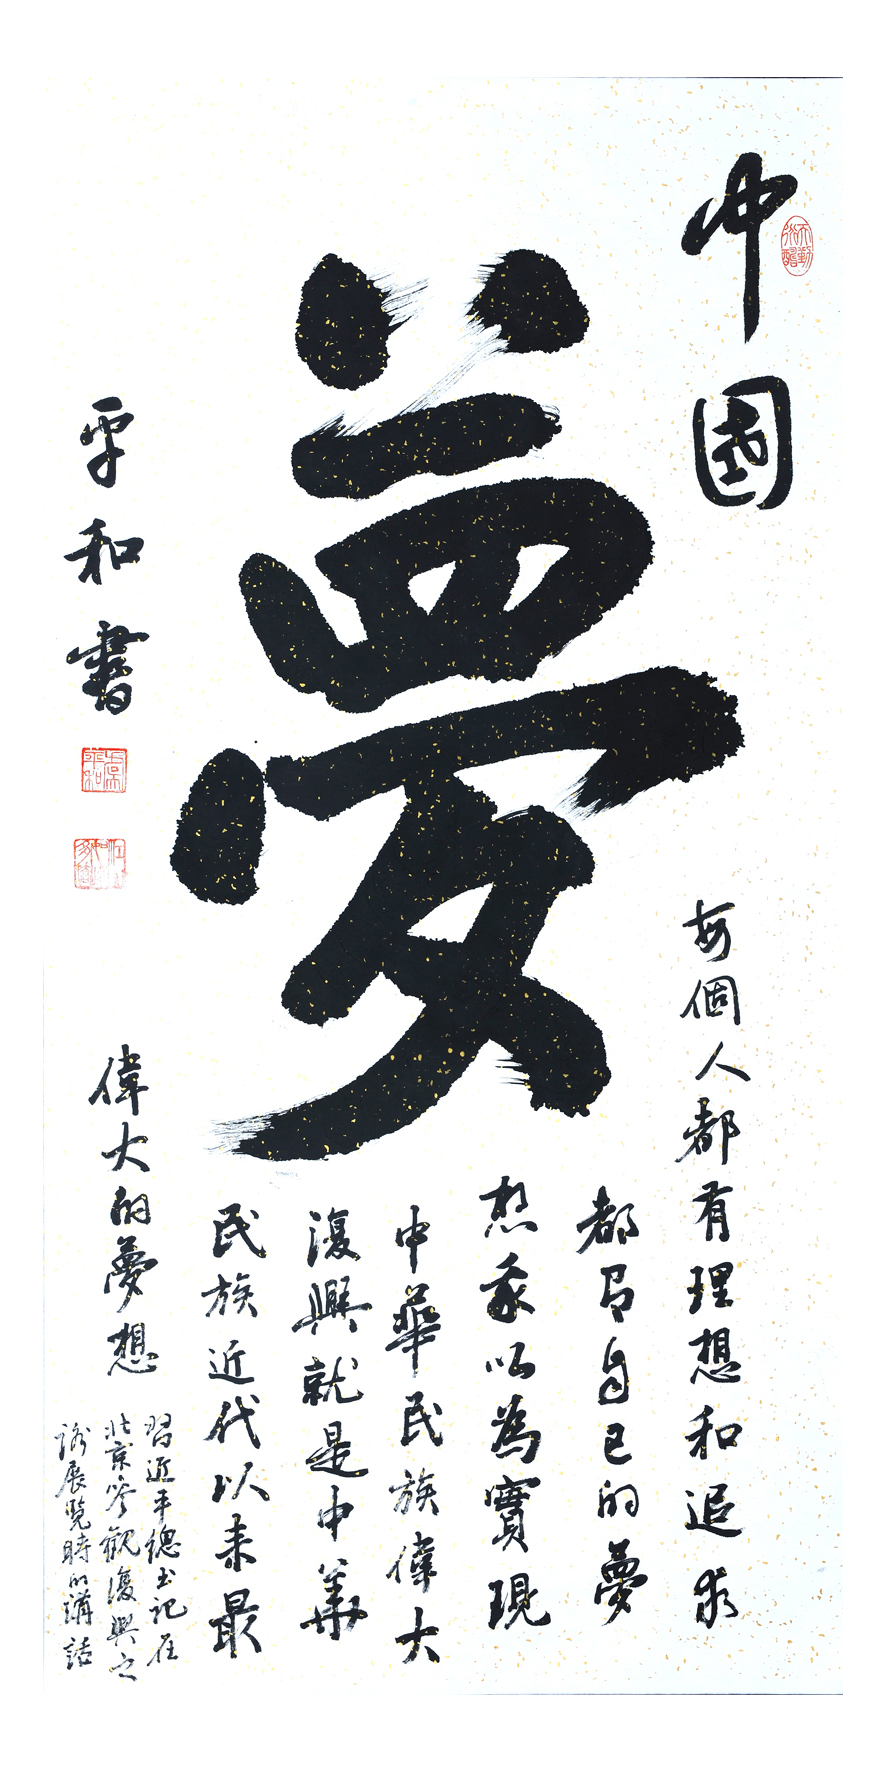 中國
夢
每個人都有理想和追求
都有自己的夢
想我以為實現
中華民族偉大
復興就是中華
民族近代以來最
偉大的夢想
習近平總書記在
北京參觀復興之
路展覽時的講話
平和書